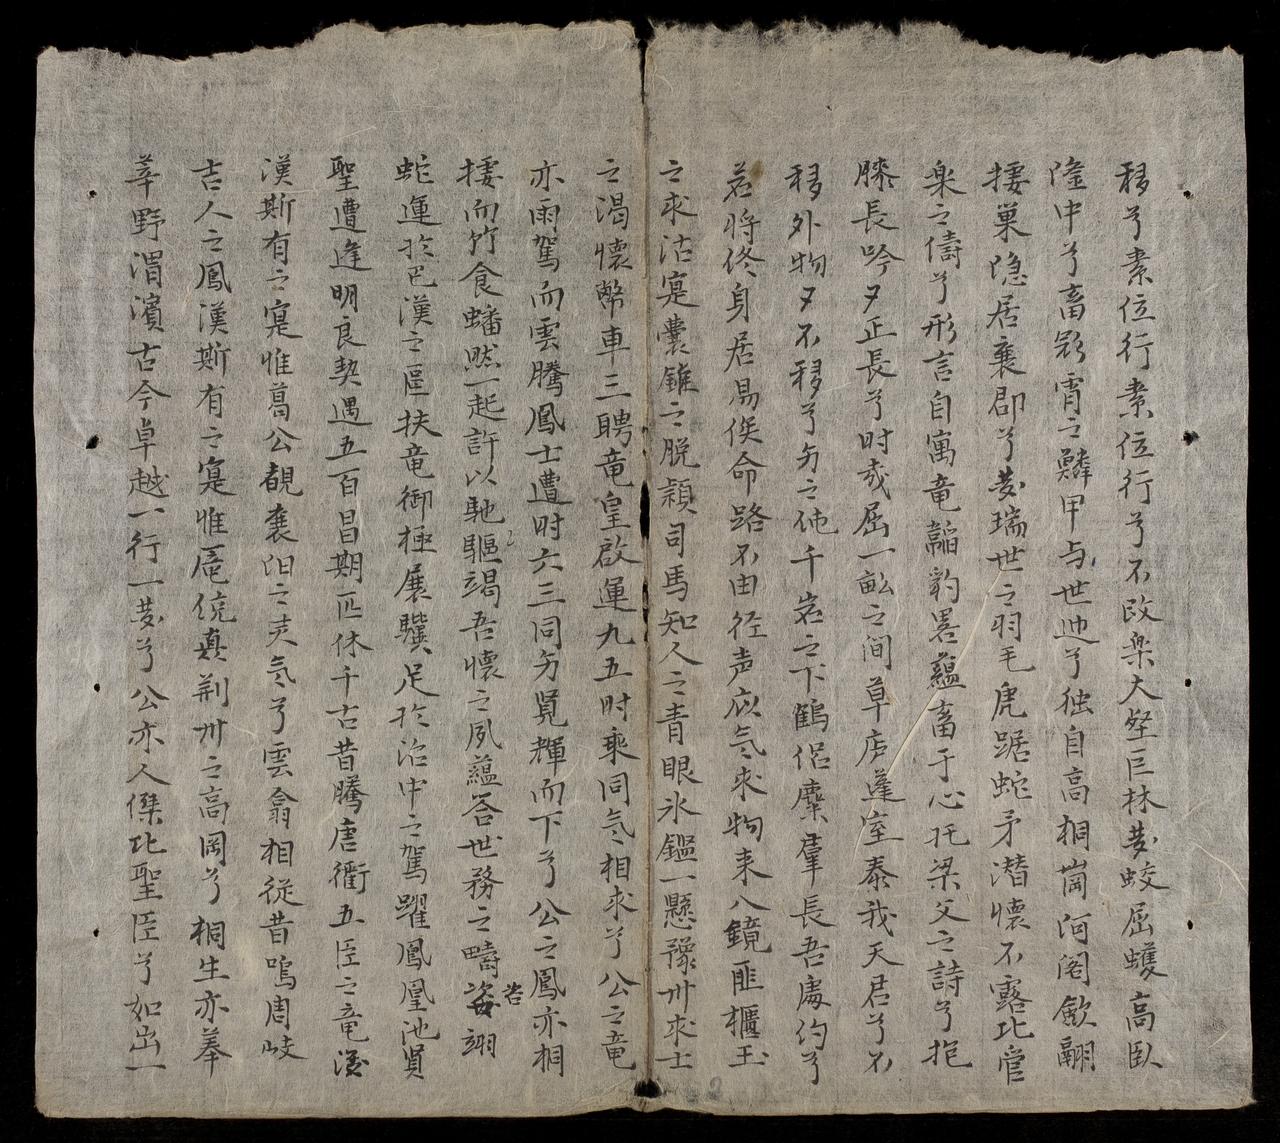 移兮素位行素位行兮不改楽大壑巨林夢蛟屈蠖高臥
隆中兮畜影霄之鱗甲与世迆兮独自高桐崗河阁歛翮
捿巢隐居襄郡兮夢瑞世之羽毛虎踞蛇矛潜懐不露比管
楽之儔兮形言自寓竜韜豹畧蘊畜于心托梁父之詩兮抱
膝長吟夕正長兮时或屈一畝之间草庐蓬室泰我天君兮不
移外物夕不移兮有之他千岩之下鶴侣麋羣長吾處约兮
若将终身居易俟命路不由径声应气求物来八鏡匪櫃玉
之求沽寔囊錐之脱颖司馬知人之青眼氷鑑一懸豫州求士
之渴懐幣車三聘竜皇啟運九五时乘同气相求兮公之竜
亦雨駕而雲騰鳳士遭时六三同有覓輝而下兮公之鳳亦桐
捿而竹食蟠然一起許以馳驅竭吾懐之夙蘊答世務之疇咨翊
蛇運於巴漢之區扶竜御極展驥足於治中之駕躍鳳凰池賢
聖遭逢明良契遇五百昌期匹休千古昔騰唐衢五臣之竜後
漢斯有之寔惟葛公覩襄沮之灵气兮雲翕相従昔鳴周岐
吉人之鳳漢斯有之寔惟庵统真荆州之高岡兮桐生亦菶
莘野渭濱古今卓越一行一夢兮公亦人傑比聖臣兮如出一